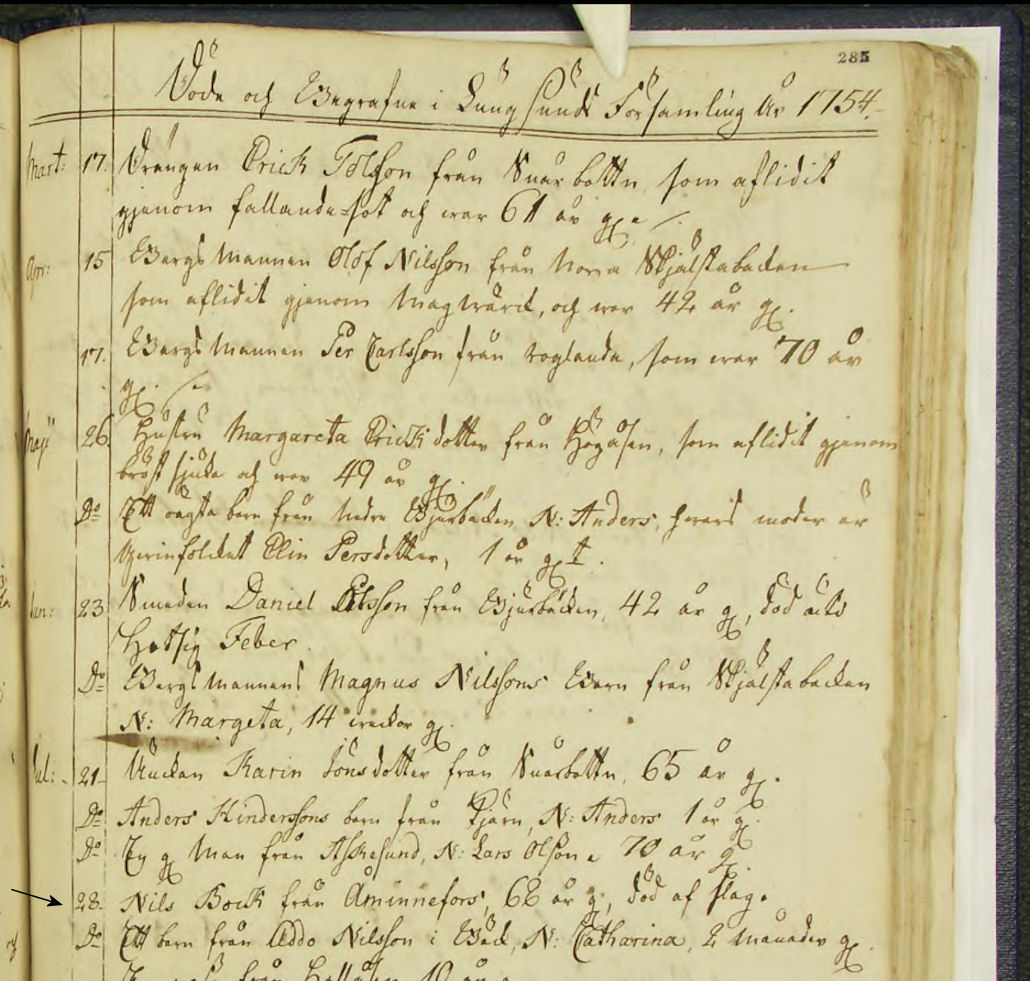 285
Döde och Begrafne i Lungsunds Församling År 1754.
Mart: 17. Drängen Erick Tolsson från Snarbottn, som aflidit
genom fallande-sot och war 61 år g.
Apr: 15 Bergsmannen Olof Nilsson från Norra Skjälstabacken
som aflidit gjenom Magwärck, och war 42 år g.
17. Bergsmannen Per Carlsson från, som war 70 år
g.
Maji 26 Hustru Margareta Ericksdotter från Högåsen, som aflidit gjenom
bröstsjuka och war 49 år g.
Do Ett oägta barn från Nedre Bjurbäcken N: Anders, hwars moder är
Qwinfolcket Elin Persdotter, 1 år g
Jun: 23 Smeden Daniel Olsson från Bjurbäcken, 42 år g, död
Hetsig Feber.
Do Bergsmannens Magnus Nilssons Barn från Skjälstabacken
N: Margeta, 14 weckor g.
Jul: 21 Änckan Karin Jönsdotter från Snarbottn, 65 år g.
Do Anders Hinderssons barn från Kjärn, N: Anders 1 år g.
Do En g Man från Askesund, N: Lars Olson 70 år g
28. Nils Bock från Åminnefors, 68 år g, död af slag.
Do Ett barn från Addo Nilsson i Bäck, N: Catharina, 2 månader g.
från Hellåsen 10 år g